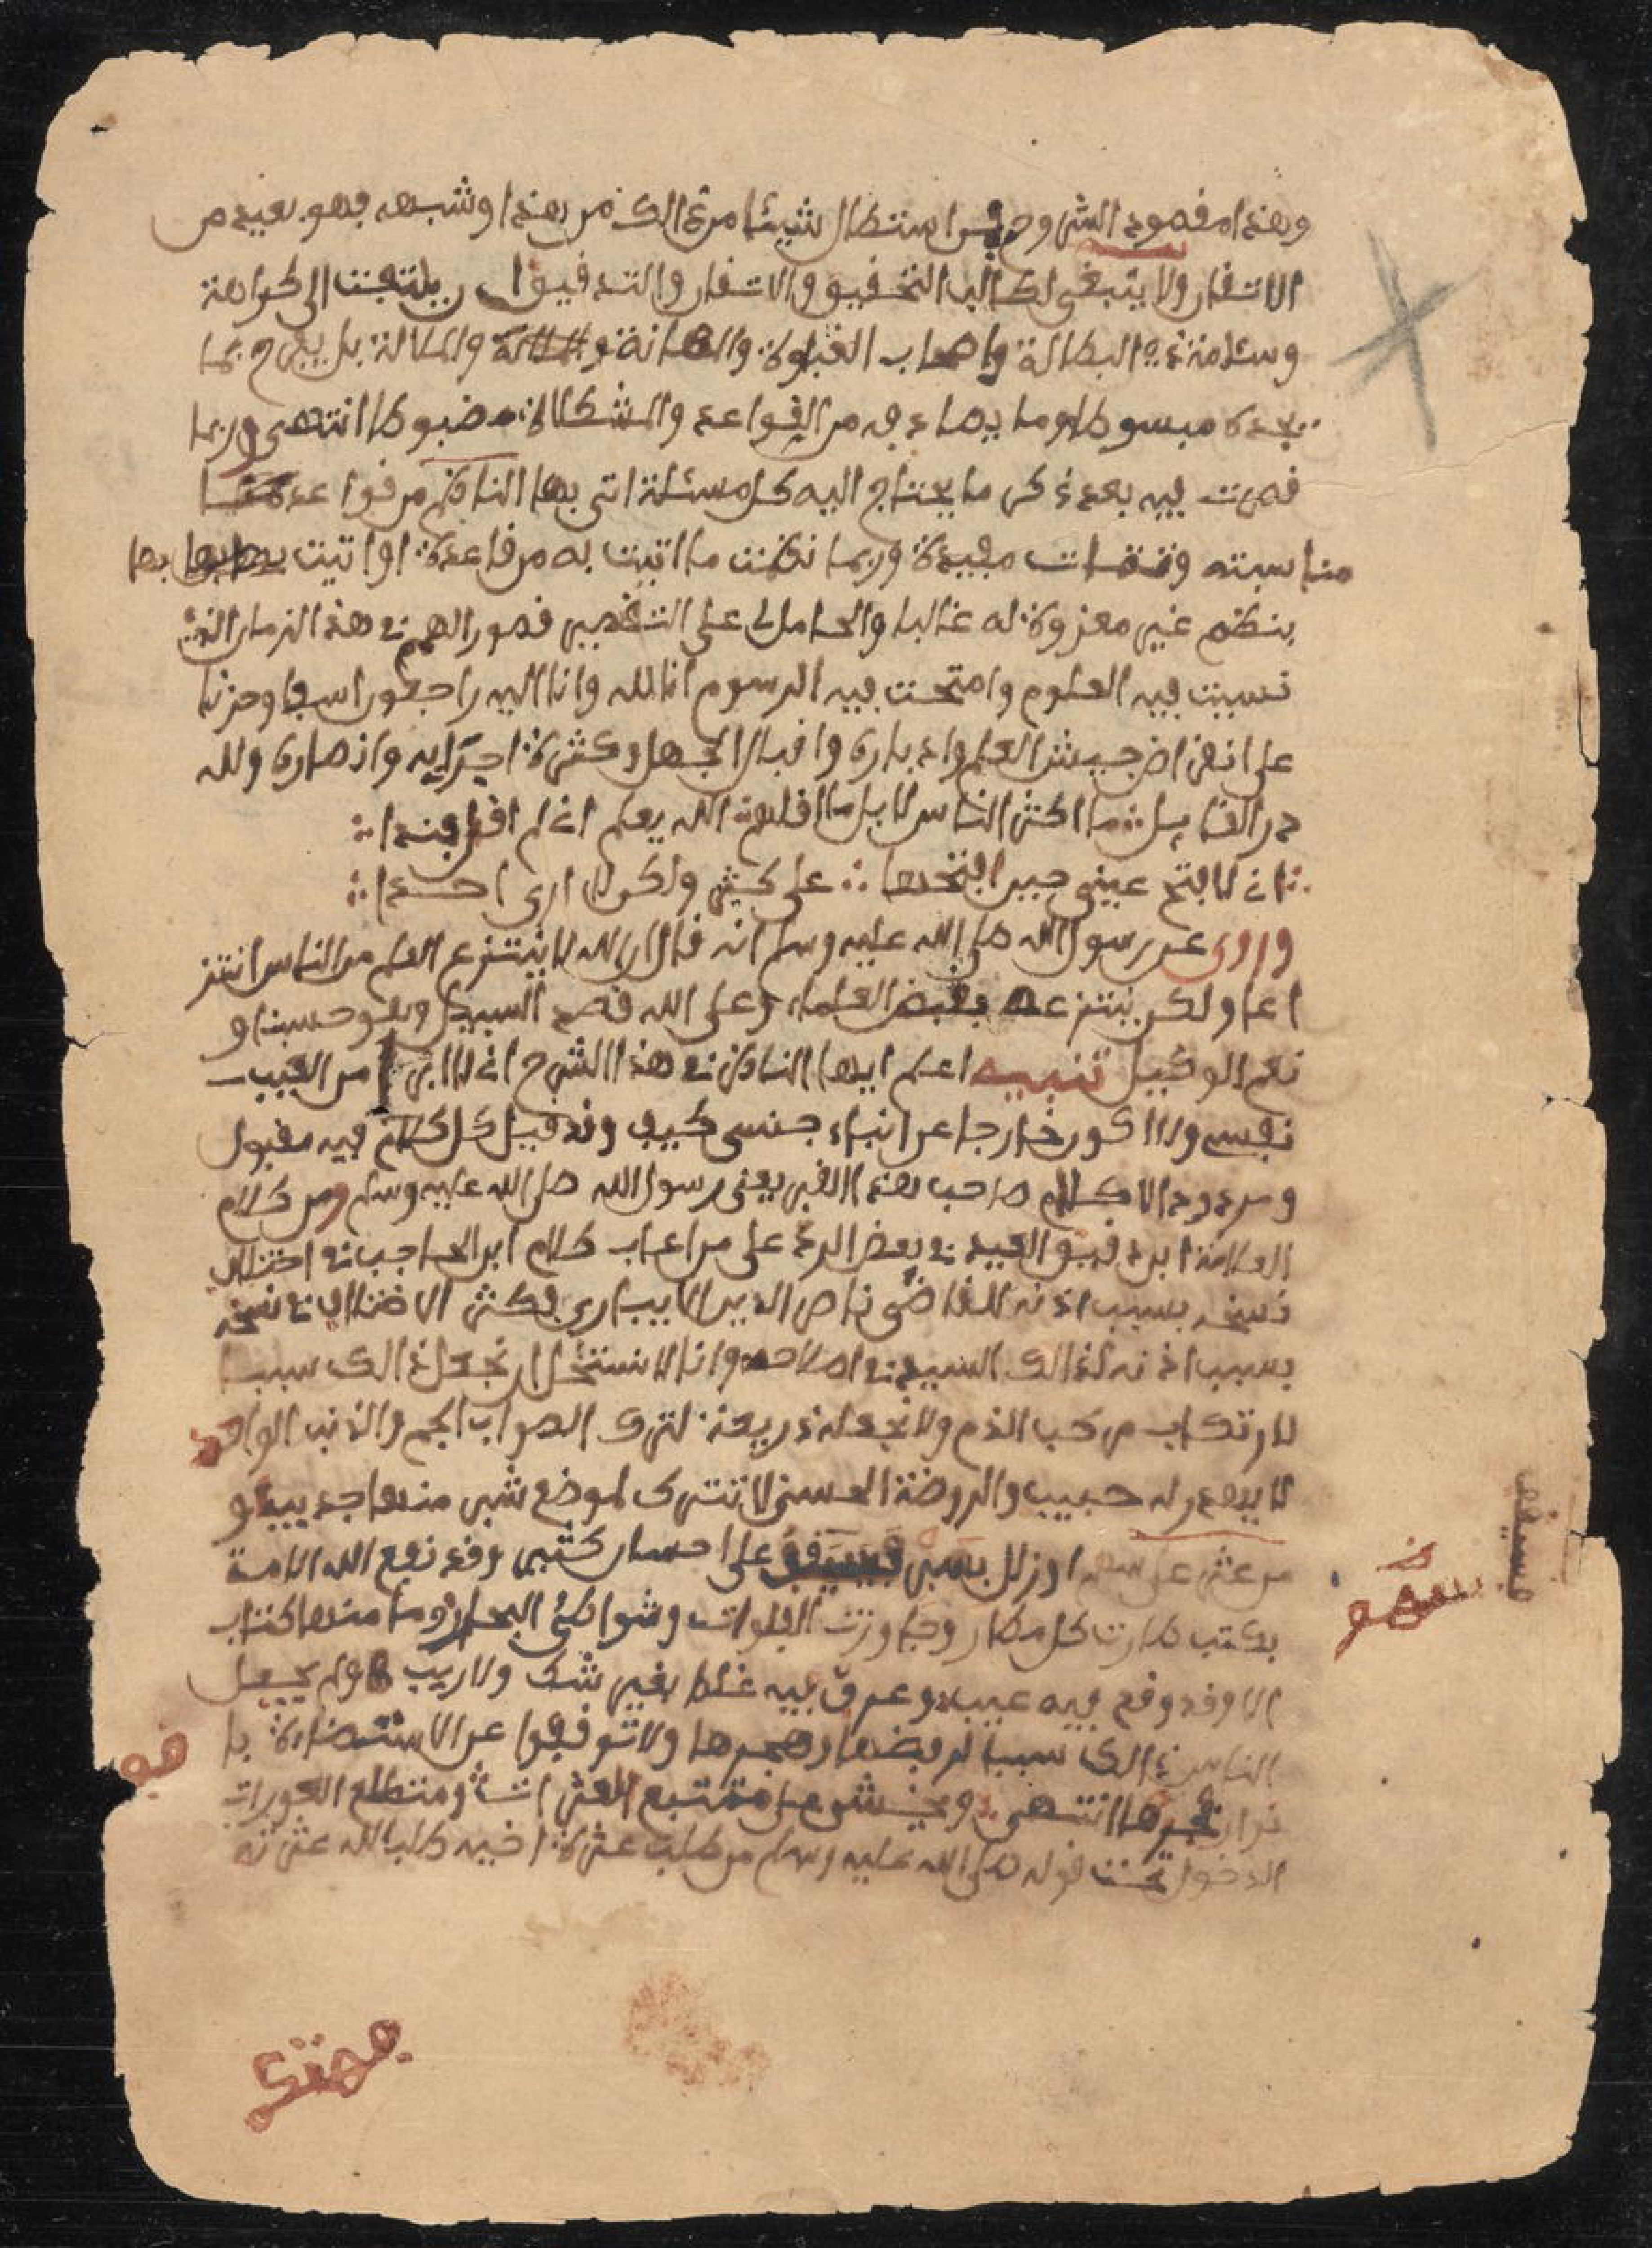 وهذا مقصود الشروح فمن استطال شيئا من ذالك من هذا وشبهه فهو بعيد من
الاتقان ولا ينبغي لطالب التحقيق والاتقان والتدقيق ان يلتفت الى كراهة
وسئامة ذوي البطالة واصحاب الغباوة والمهانة والملالة بل يفرح بما
يجده مبسوطا وما يصادفه من القواعد والمشكلات مضبوطا انتهى وربما
قصرت فيه بعد ذكر ما يحتاج اليه كل مسئلة اتى بها الناظم من قواعد
مناسبته وتتمات مفيدة وربما نظمت ما اتيت به من قاعدة او اتيت بها
بنظم غير معزوة له غالبا والحامل لي على التقصير قصور الهمم في هذا الزمان الذي
نسيت فيه العلوم وامتحت فيه الرسوم انا لله وانا اليه راجعون اسفا وحزنا
على انقراض جيش العلم وادباره واقبال الجهل وكثرة احزابه وانصاره ولله
در القايل ما اكثر الناس لا بل ما اقلهم الله يعلم اني لم اقل فندا
اني لافتح عيني حين افتحها على كثير ولكن لا ارى احدا
وروى عن رسول الله صلى الله عليه وسلم انه قال ان الله لا ينتزع العلم من الناس انتز
اعا ولكن ينتزعه بقبض العلماء وعلى الله قصد السبيل وهو حسبنا و
نعم الوكيل تنبيه اعلم ايها الناظر في هذا الشرح اني لا ابرئ من العيب
نفسي ولا اكون خارجا عن ابناء جنسي كيف وقد قيل كل كلام فيه مقبول
ومردود الا كلام صاحب هذا القبر يعني رسول الله صلى الله عليه وسلم ومن كلام
العلامة ابن دقيق العيد في بعض الرد على من اعاب كلام ابن الحاجب في اختلاف
نسخه بسبب اذنه للقاضي ناصر الدين الابياري فكثر الاختلاف في نسخه
بسبب اذنه لذالك السيد في اصلاحه وانا لا نستحل ان نجعل ذالك سببا
لارتكاب مركب الذم ولا نجعله ذريعة لترك الصواب الجم والذنب الواحد
لا يهجر له حبيب والروضة الحسنى لا تترك لموضع شبر منها جديب و
من عثر على سهو او زلل يسير على احسان كثير وقد نفع الله الامة
بكتب طارت كل مطار وجاوزت الفلوات وشواطئ البحار وما منها كتاب
الا وقد وقع فيه عيب وعرف فيه غلط بغير شك ولا ريب ولم يجعل
الناس ذالك سببا لرفضها وهجرها ولا توقفوا عن الاستضاءة با
نوار فجرها انتهى ويخشى على متتبع العثرات ومتطلع العورات
الدخول تحت قوله صلى الله عليه وسلم من طلب عثرة اخيه طلب الله عثرته
سهو
هو